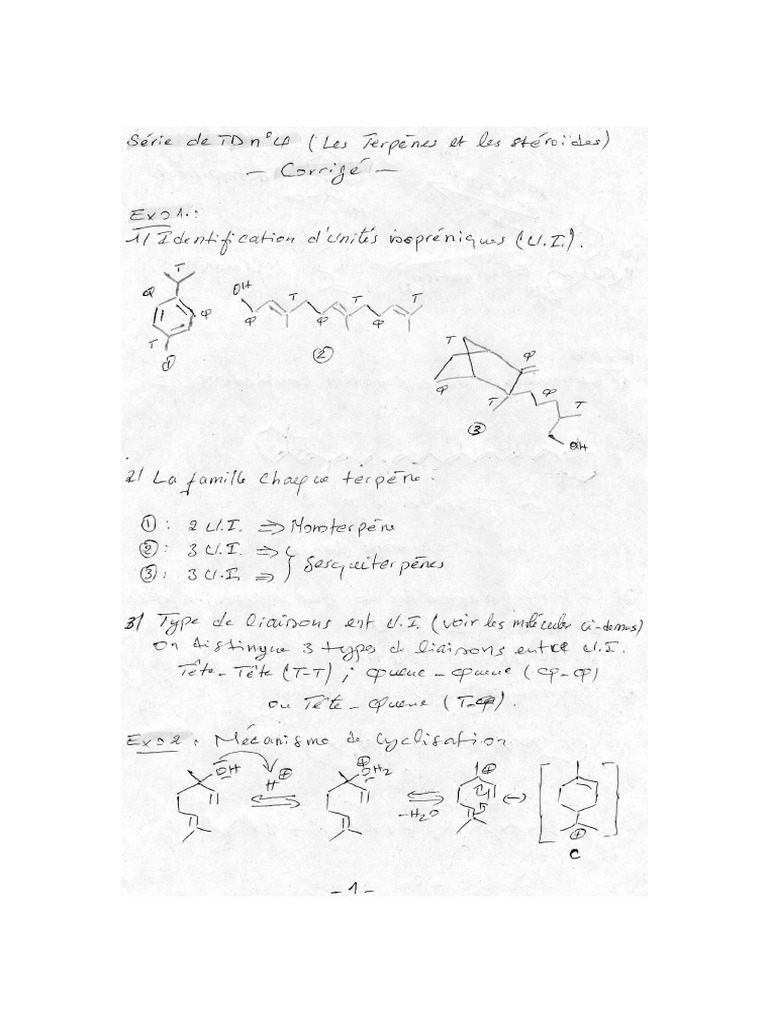 Série de TD n°4 (Les Terpènes et les stéroïdes)
— Corrigé —
Exo1.:
1/ Identification d'unités isopréniques (U.I.).
T
Q
Q
T
①
OH
Q
T
Q
T
Q
T
②
T
Q
Q
T
Q
T
OH
③
2/ La famille chaque terpène.
①: 2 U.I. ⇒ Monoterpène
②: 3 U.I. ⇒
③: 3 U.I. ⇒ } Sesquiterpènes
3/ Type de liaisons ent U.I. (voir les molécules ci-dessus)
on distingue 3 types de liaisons entre U.I.
Tête-Tête (T-T) ; Queue-Queue (Q-Q)
ou Tête-Queue (T-Q).
Exo2: Mécanisme de cyclisation
OH
H⊕
⊕
OH2
-H2O
⊕
⊕
C
-1-